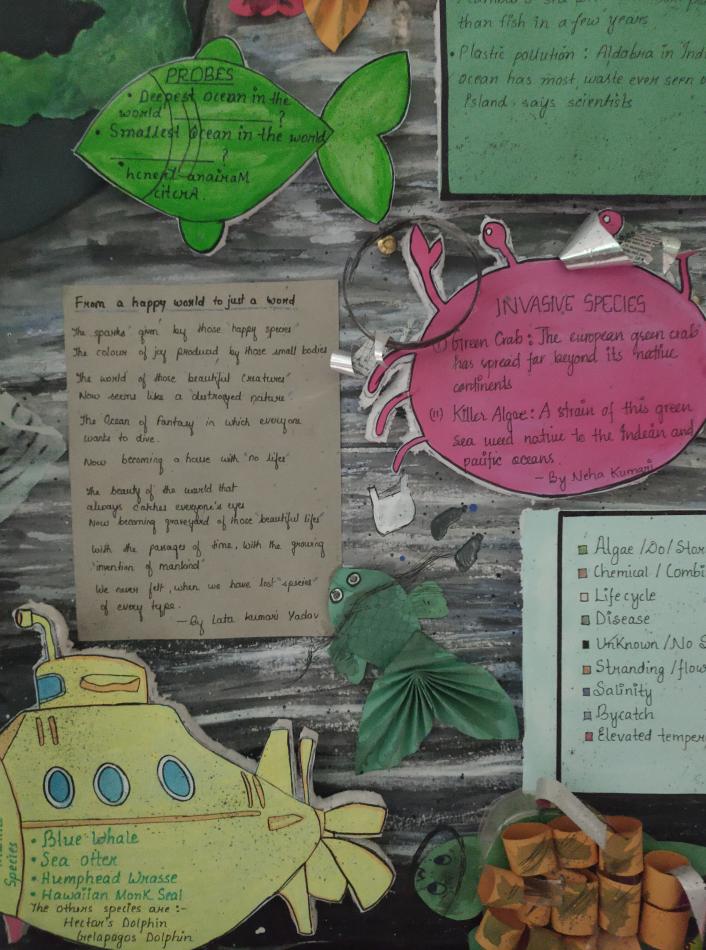 PROBES
• Deepest ocean in the
world ?
• Smallest Ocean in the world
?
Mariana Trench
Arctic
than fish in a few years
• Plastic pollution : Aldabra in Indi
Ocean has most waste ever seen o
Island, says scientists
From a happy world to just a word
The sparks "given" by those "happy species"
The colour of joy produced by those small bodies
The world of those beautiful "creatures"
Now seems like a "distroyed nature"
The Ocean of fantasy in which everyone
wants to dive.
Now becoming a house with "no lifes"
The beauty of the world that
always catches everyone's eyes
Now becoming graveyard of those "beautiful lifes"
With the passages of time, with the growing
"invention of mankind"
We never felt, when we have lost "species"
of every type.
— By Lata Kumari Yadav
INVASIVE SPECIES
(I) Green Crab : The european green crab
has spread far beyond its native
continents
(II) Killer Algae : A strain of this green
sea weed native to the Indean and
pacific oceans.
— By Neha Kumari
Algae /Do/
Chemical / Combi
Life cycle
Disease
UnKnown /No S
Stranding /
Salinity
Bycatch
Elevated temper
Species
• Blue Whale
• Sea otter
• Humphead Wrasse
• Hawaiian Monk Seal
The others species are :-
Hector's Dolphin
Gelapagos Dolphin